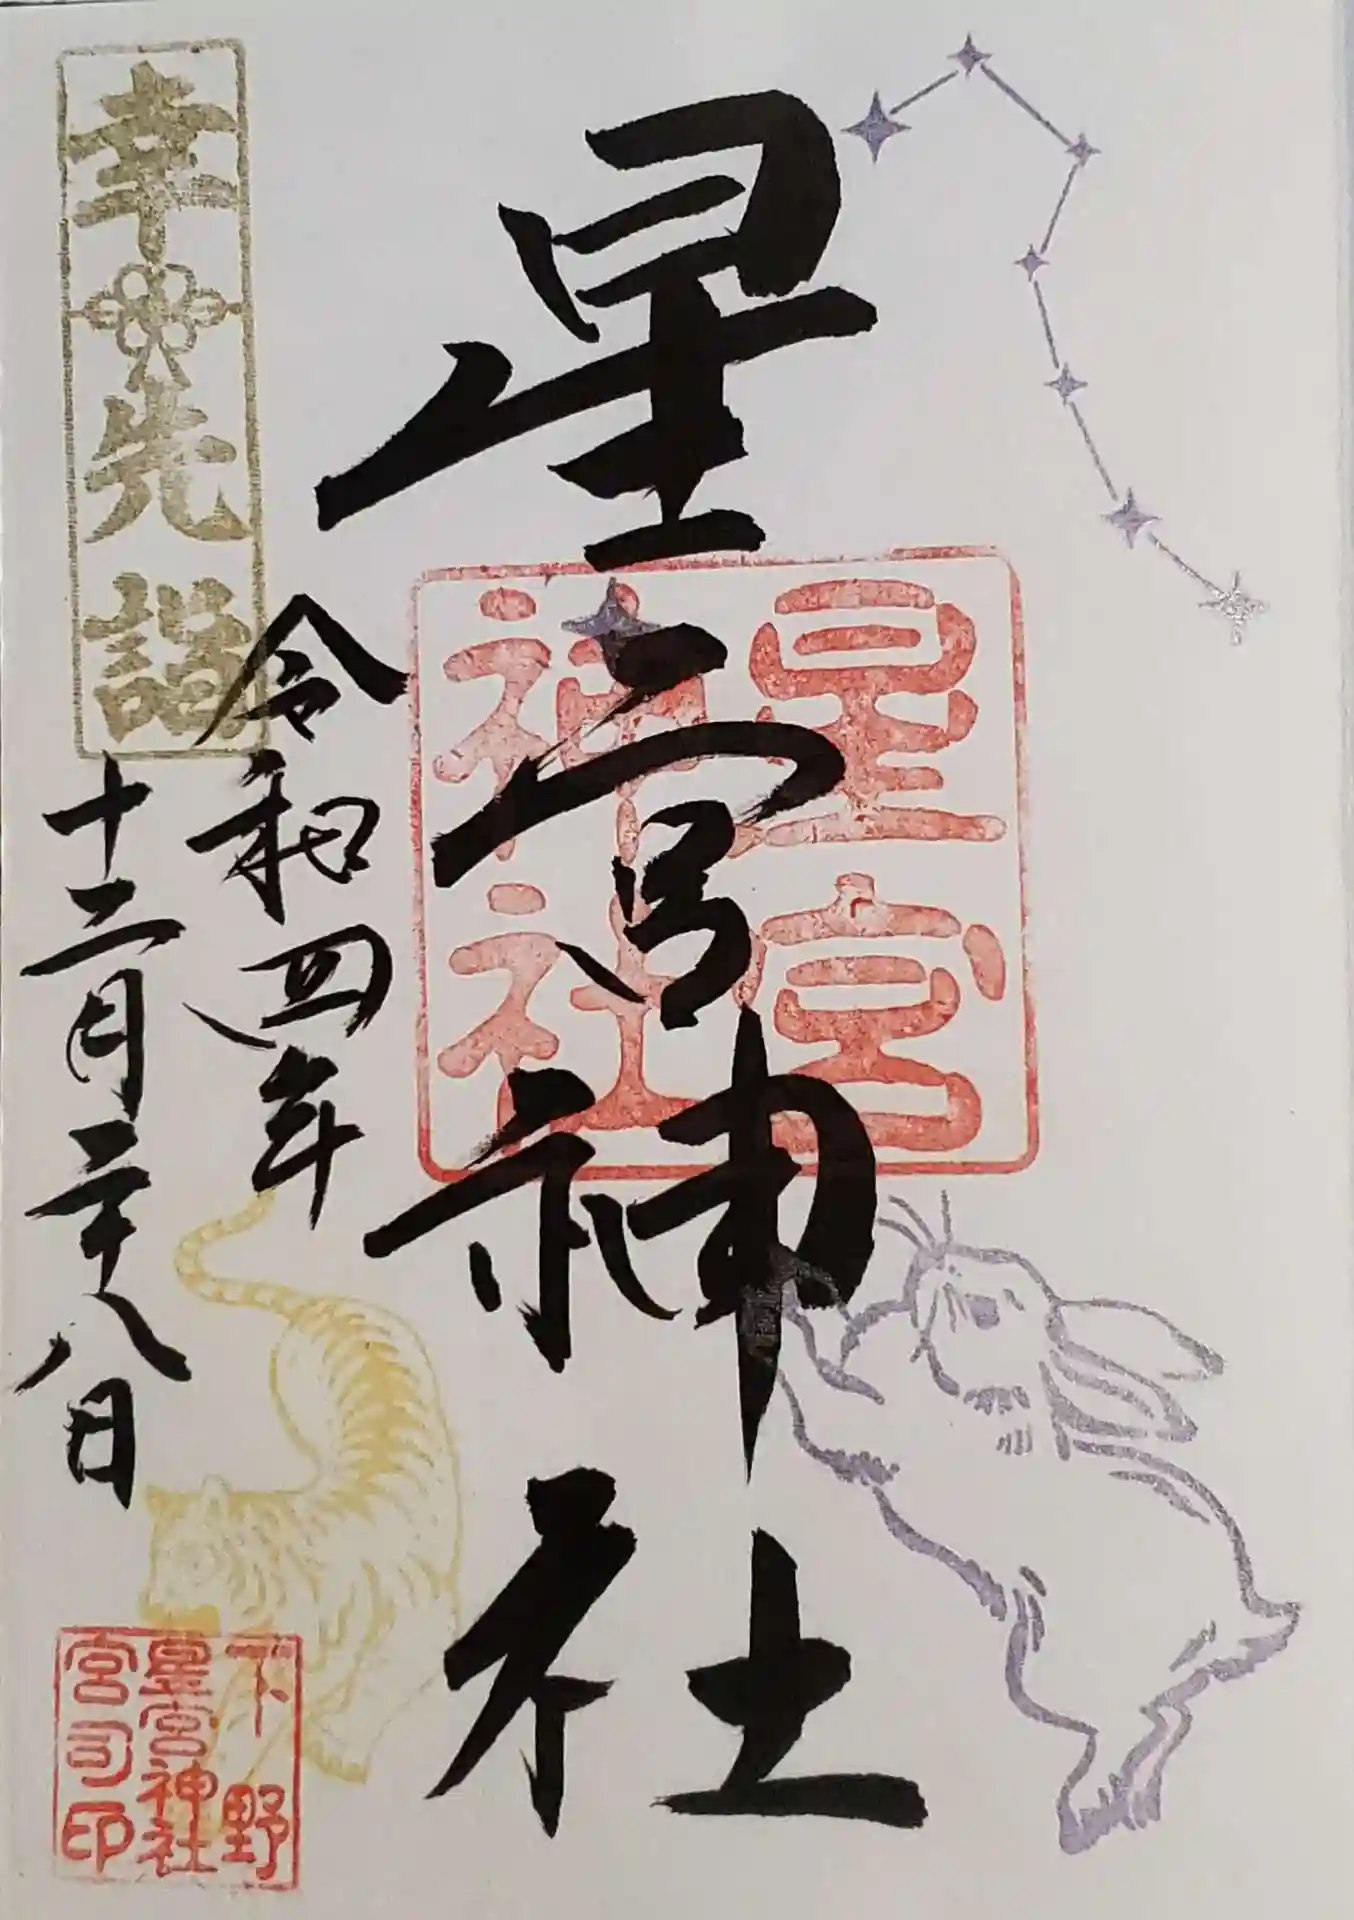 星宮神社
星宮
神社
令和四年
十二月二十八日
幸先詣
下野
星宮神社
宮司印